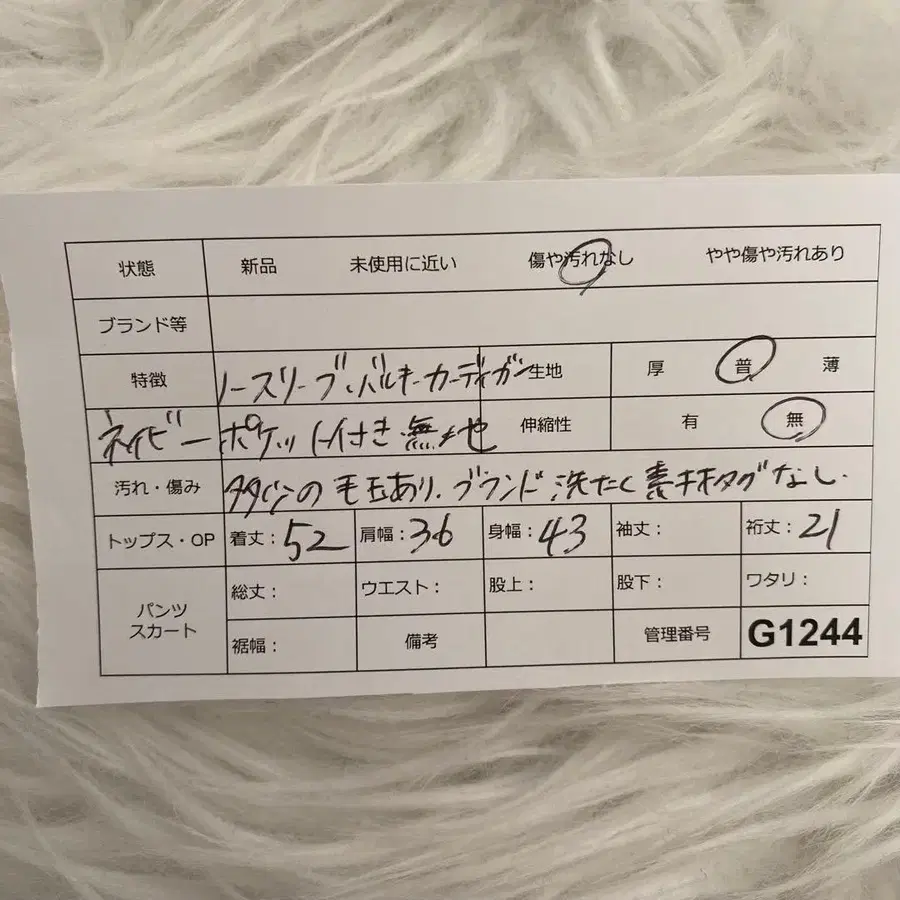 状態 新品 未使用に近い 傷や汚れなし やや傷や汚れあり
ブランド等
特徴 ノースリーブ・バルキーカーディガン 生地 厚 普 薄
ネイビー ポケット付き 無地 伸縮性 有 無
汚れ・傷み の毛玉あり.ブランド 洗たく 素材タグなし.
トップス・OP 着丈:52 肩幅:36 身幅:43 袖丈: 裄丈:21
パンツ スカート 総丈: ウエスト: 股上: 股下: ワタリ:
裾幅: 備考 管理番号 G1244